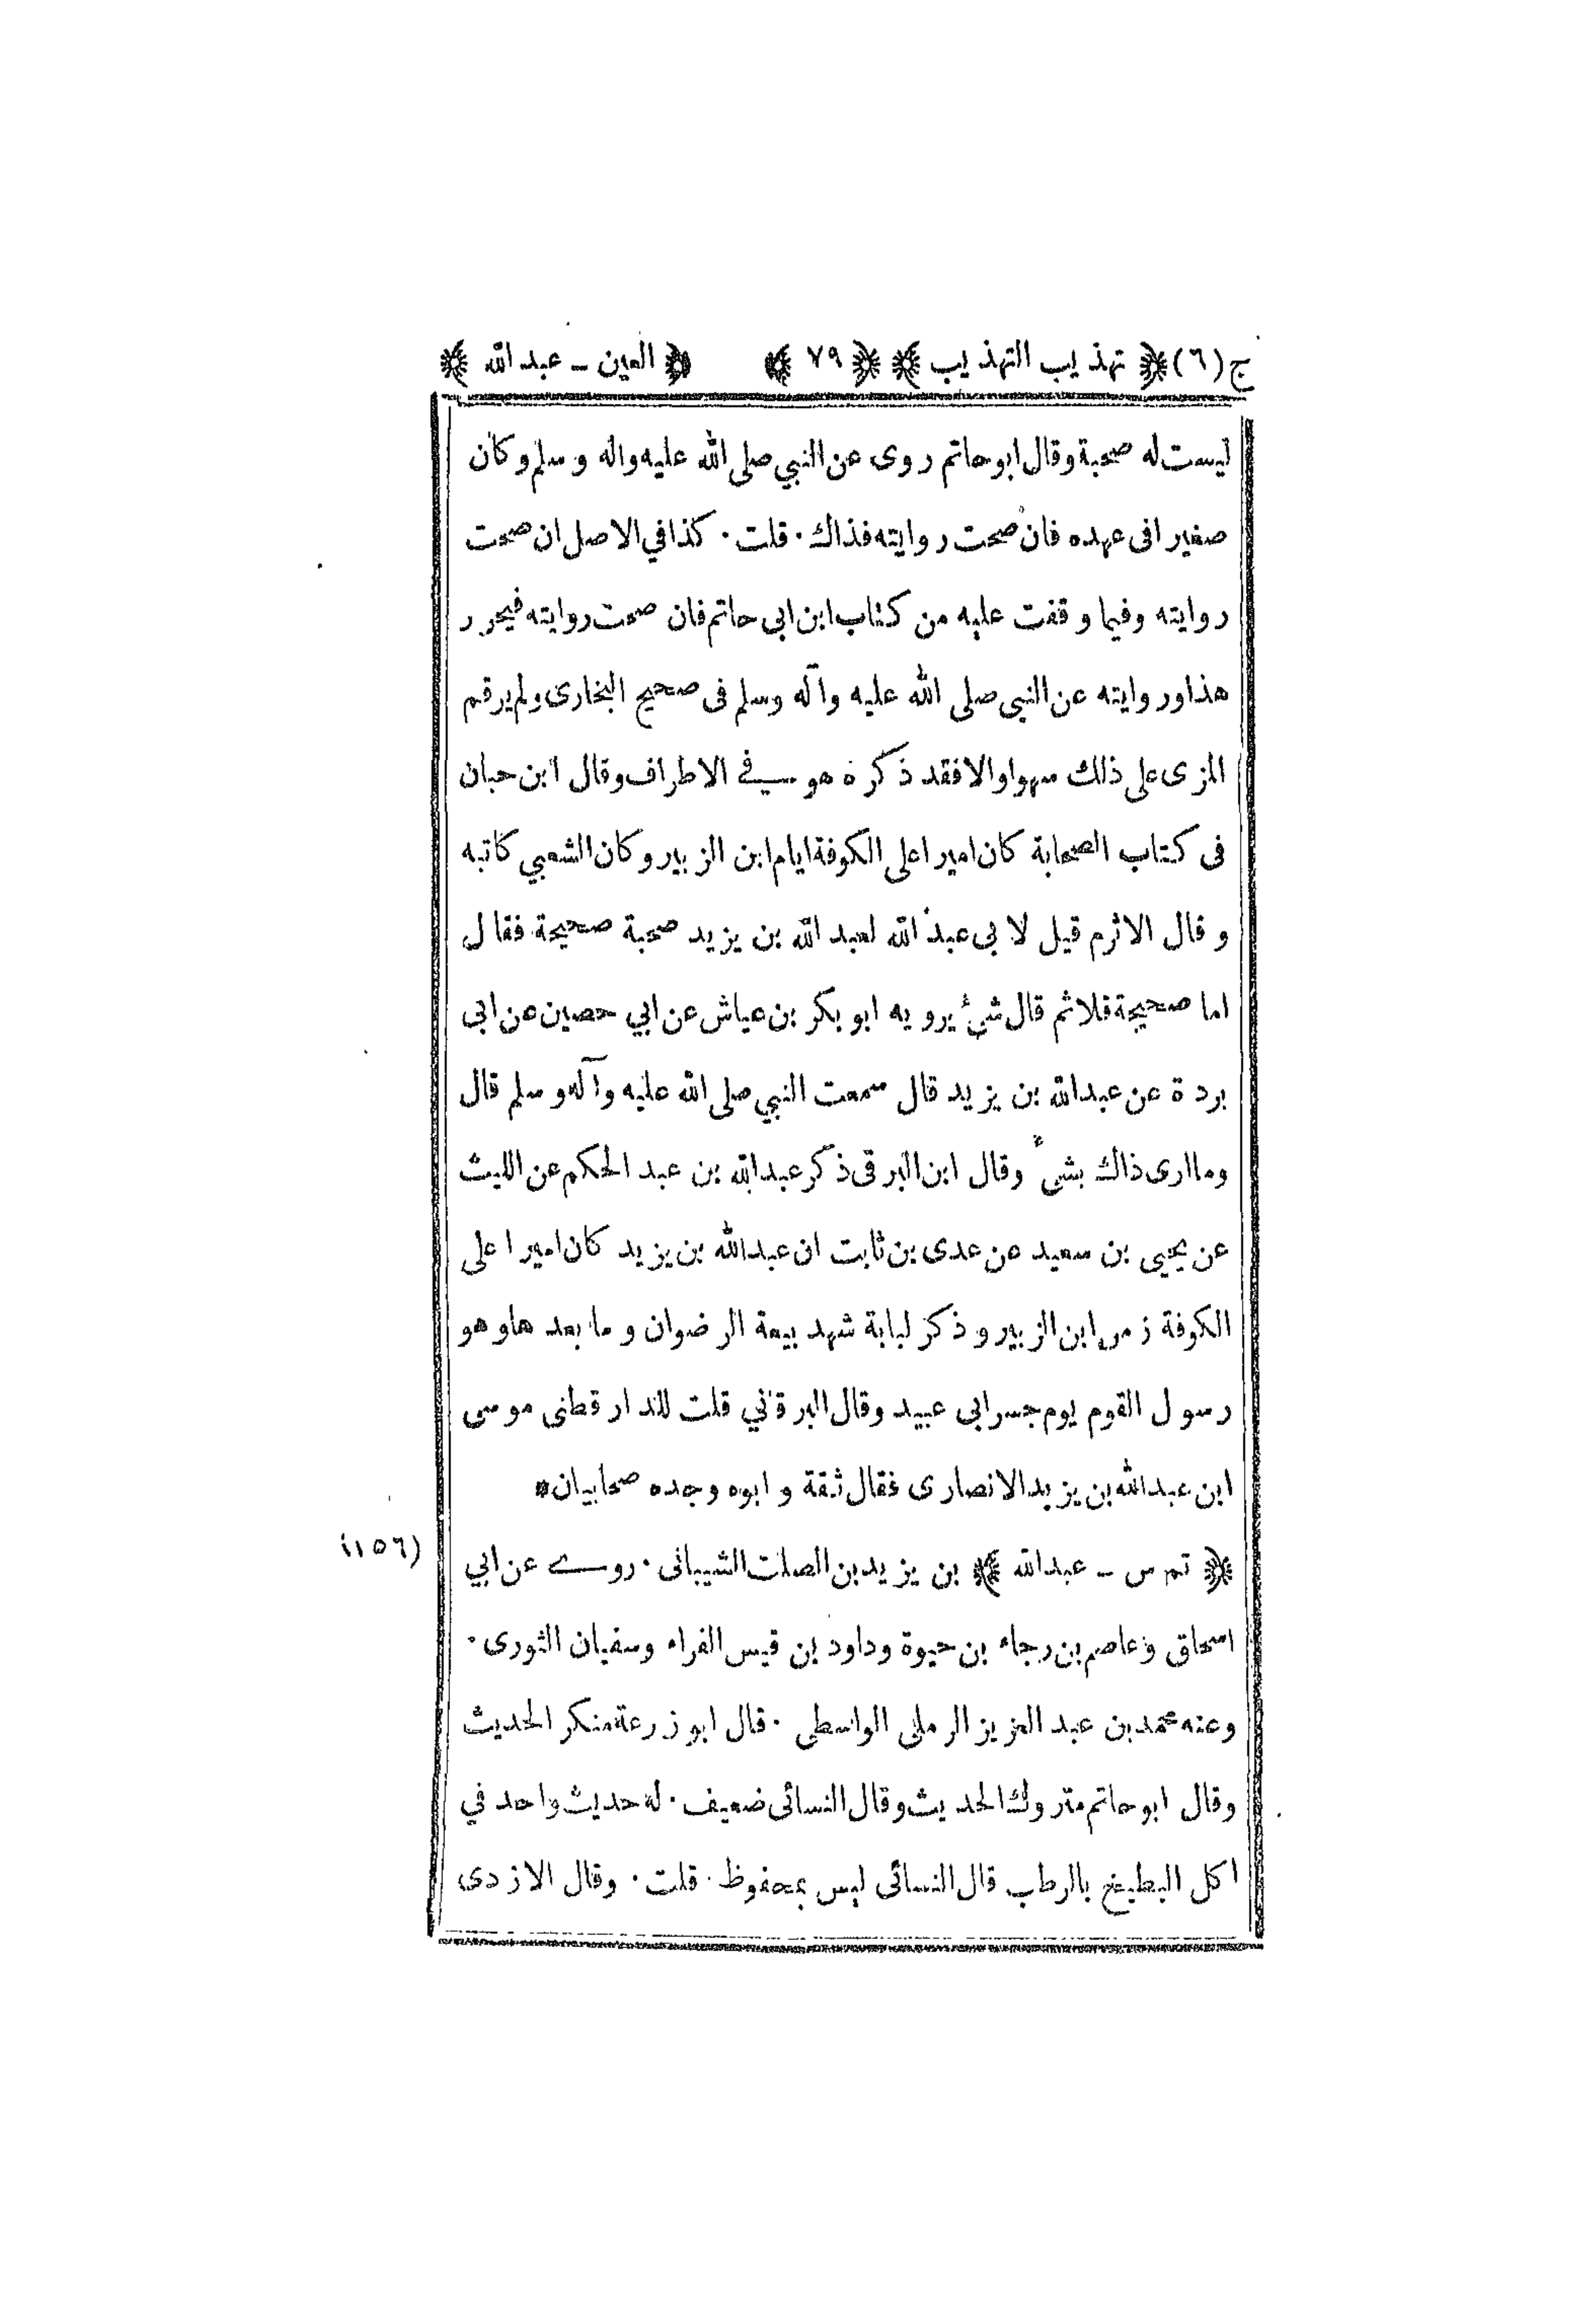 ج (٦) ﴿ تهذيب التهذيب ﴾ ﴿ ٧٩ ﴾ ﴿ العين - عبد الله ﴾
ليست له صحبة وقال ابو حاتم روى عن النبي صلى الله عليه واله وسلم وكان
صغيرا فى عهده فان صحت روايته فذاك · قلت · كذا في الاصل ان صحت
روايته وفيما وقفت عليه من كتاب ابن ابى حاتم فان صحت روايته فيحرر
هذا وروايته عن النبى صلى الله عليه وآله وسلم فى صحيح البخارى ولم يرقم
المزى على ذلك سهوا والا فقد ذكره هو في الاطراف وقال ابن حبان
فى كتاب الصحابة كان اميرا على الكوفة ايام ابن الزبير وكان الشعبي كاتبه
وقال الاثرم قيل لابى عبد الله لعبد الله بن يزيد صحبة صحيحة فقال
اما صحيحة فلا ثم قال شئ يرويه ابو بكر بن عياش عن ابي حصين عن ابى
بردة عن عبد الله بن يزيد قال سمعت النبي صلى الله عليه وآله وسلم قال
وما ارى ذاك بشئ وقال ابن البرقى ذكر عبد الله بن عبد الحكم عن الليث
عن يحيى بن سعيد عن عدى بن ثابت ان عبد الله بن يزيد كان اميرا على
الكوفة زمن ابن الزبير وذكر لبابة شهد بيعة الرضوان وما بعدها وهو
رسول القوم يوم جسر ابى عبيد وقال البرقاني قلت للدارقطنى موسى
ابن عبد الله بن يزيد الانصارى فقال ثقة وابوه وجده صحابيان *
﴿ تم س - عبد الله ﴾ بن يزيد بن الصلت الشيبانى · روى عن ابي (١٥٦)
اسحاق وعاصم بن رجاء بن حيوة وداود بن قيس الفراء وسفيان الثورى ·
وعنه محمد بن عبد العزيز الرملى الواسطى · قال ابو زرعة منكر الحديث
وقال ابو حاتم متروك الحديث وقال النسائى ضعيف · له حديث واحد في
اكل البطيخ بالرطب قال النسائى ليس بمحفوظ · قلت · وقال الازدى